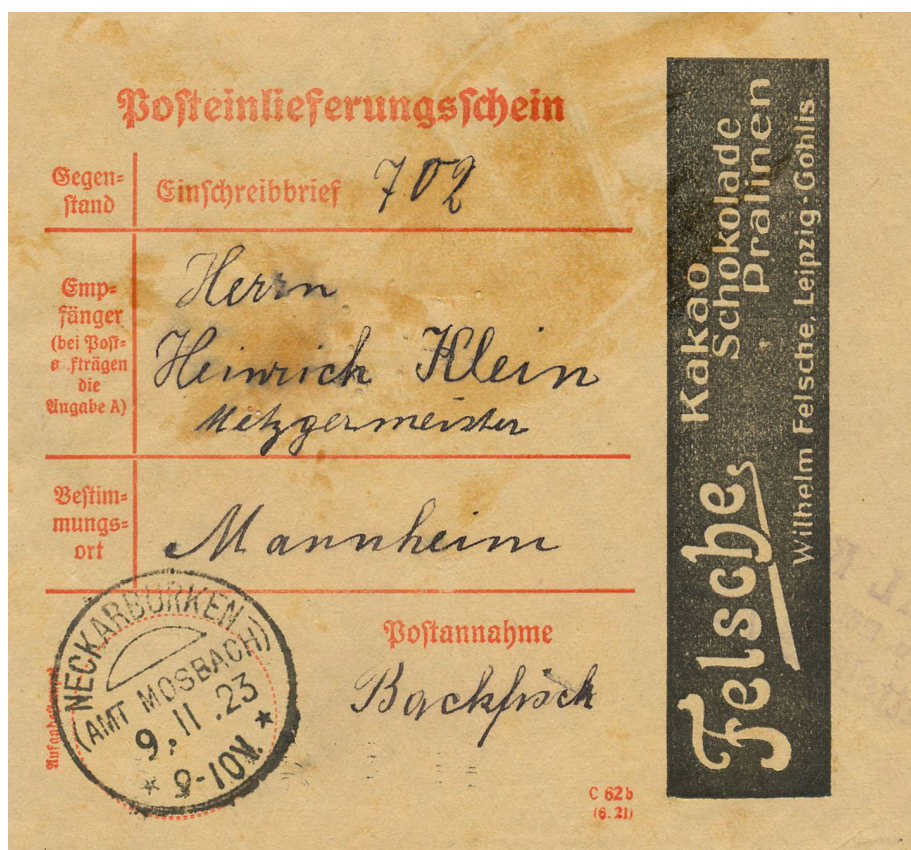 Posteinlieferungsschein
Gegen-
stand
Einschreibbrief 702
Emp-
fänger
(bei Post-
a fträgen
die
Angabe A)
Herrn
Heinrich Klein
Metzgermeister
Bestim-
mungs-
ort
Mannheim
Postannahme
Backfisch
NECKARBURKEN
(AMT MOSBACH)
9.11.23
* 9-10V. *
C 62b
(6. 21)
Felsche,
Kakao
Schokolade
Pralinen
Wilhelm Felsche, Leipzig-Gohlis